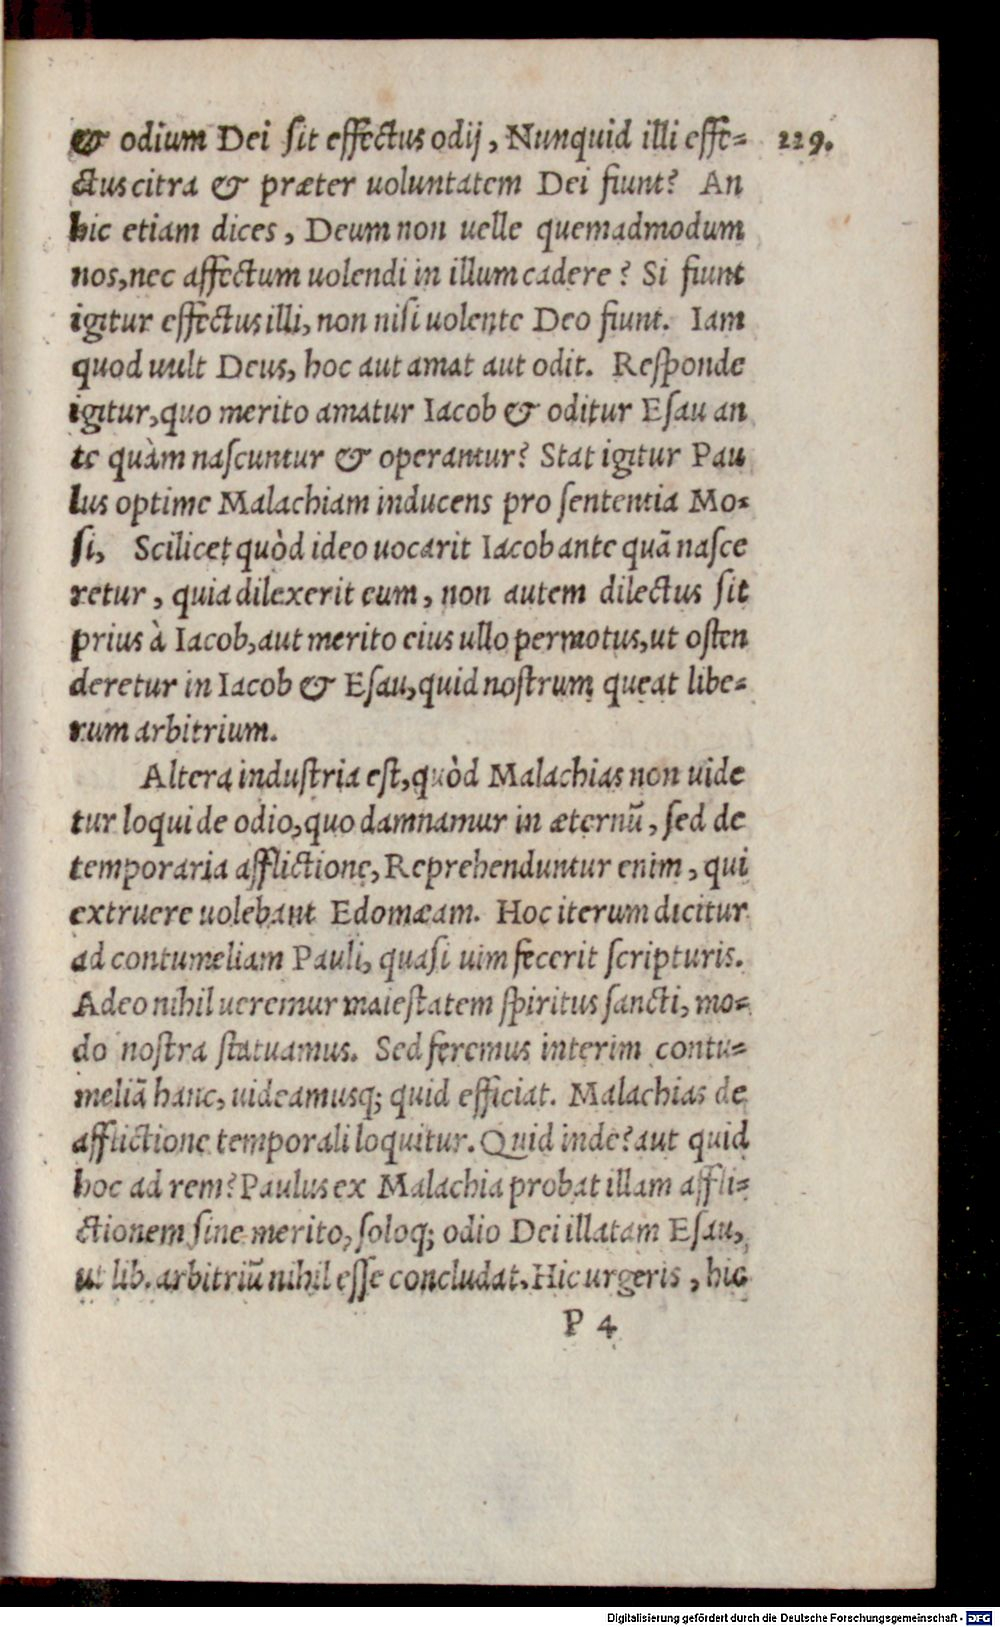 & odium Dei ſit effectus odij, Nunquid illi effe-
ctus citra & præter uoluntatem Dei fiunt? An
hic etiam dices, Deum non uelle quemadmodum
nos, nec affectum uolendi in illum cadere? Si fiunt
igitur effectus illi, non niſi uolente Deo fiunt. Iam
quod uult Deus, hoc aut amat aut odit. Reſponde
igitur, quo merito amatur Iacob & oditur Eſau an
te quàm naſcuntur & operantur? Stat igitur Pau
lus optime Malachiam inducens pro ſententia Mo-
ſi, Scilicet quòd ideo uocarit Iacob ante quã naſce
retur, quia dilexerit eum, non autem dilectus ſit
prius à Iacob, aut merito eius ullo permotus, ut oſten
deretur in Iacob & Eſau, quid noſtrum queat libe-
rum arbitrium.
Altera induſtria eſt, quòd Malachias non uide
tur loqui de odio, quo damnamur in æternũ, ſed de
temporaria afflictione, Reprehenduntur enim, qui
extruere uolebant Edomæam. Hoc iterum dicitur
ad contumeliam Pauli, quaſi uim fecerit ſcripturis.
Adeo nihil ueremur maieſtatem ſpiritus ſancti, mo-
do noſtra ſtatuamus. Sed feremus interim contu-
meliã hanc, uideamusq; quid efficiat. Malachias de
afflictione temporali loquitur. Quid inde? aut quid
hoc ad rem? Paulus ex Malachia probat illam affli-
ctionem ſine merito, ſoloq; odio Dei illatam Eſau,
ut lib. arbitriũ nihil eſſe concludat. Hic urgeris, hic
P 4
229.
Digitalisierung gefördert durch die Deutsche Forschungsgemeinschaft - DFG